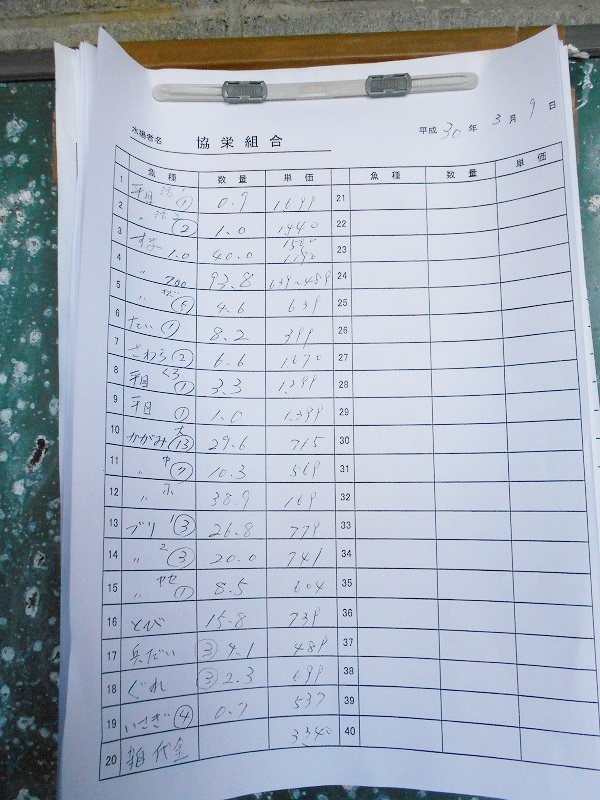 水揚者名 協栄組合 平成 30 年 3 月 9 日
魚種 数量 単価 魚種 数量 単価
1 平目 活1 ① 0.9 1699 21
2 〃 活2 ② 1.0 1440 22
3 すま 1.0 40.0 1190 23
4 〃 700 93.8 639~489 24
5 〃 ⑤ 4.6 639 25
6 たい ① 8.2 399 26
7 さわら ② 6.6 1670 27
8 平目 くろ ① 3.3 1399 28
9 平目 ① 1.0 1399 29
10 かがみ 大 ⑬ 29.6 715 30
11 〃 中 ⑦ 10.3 569 31
12 〃 小 38.9 169 32
13 ブリ 1 ③ 26.8 779 33
14 〃 2 ③ 20.0 741 34
15 〃 ヤセ ① 8.5 604 35
16 とび 15.8 739 36
17 兵だい ③ 4.1 489 37
18 ぐれ ③ 2.3 699 38
19 いさぎ ④ 0.7 537 39
20 代金 3340 40